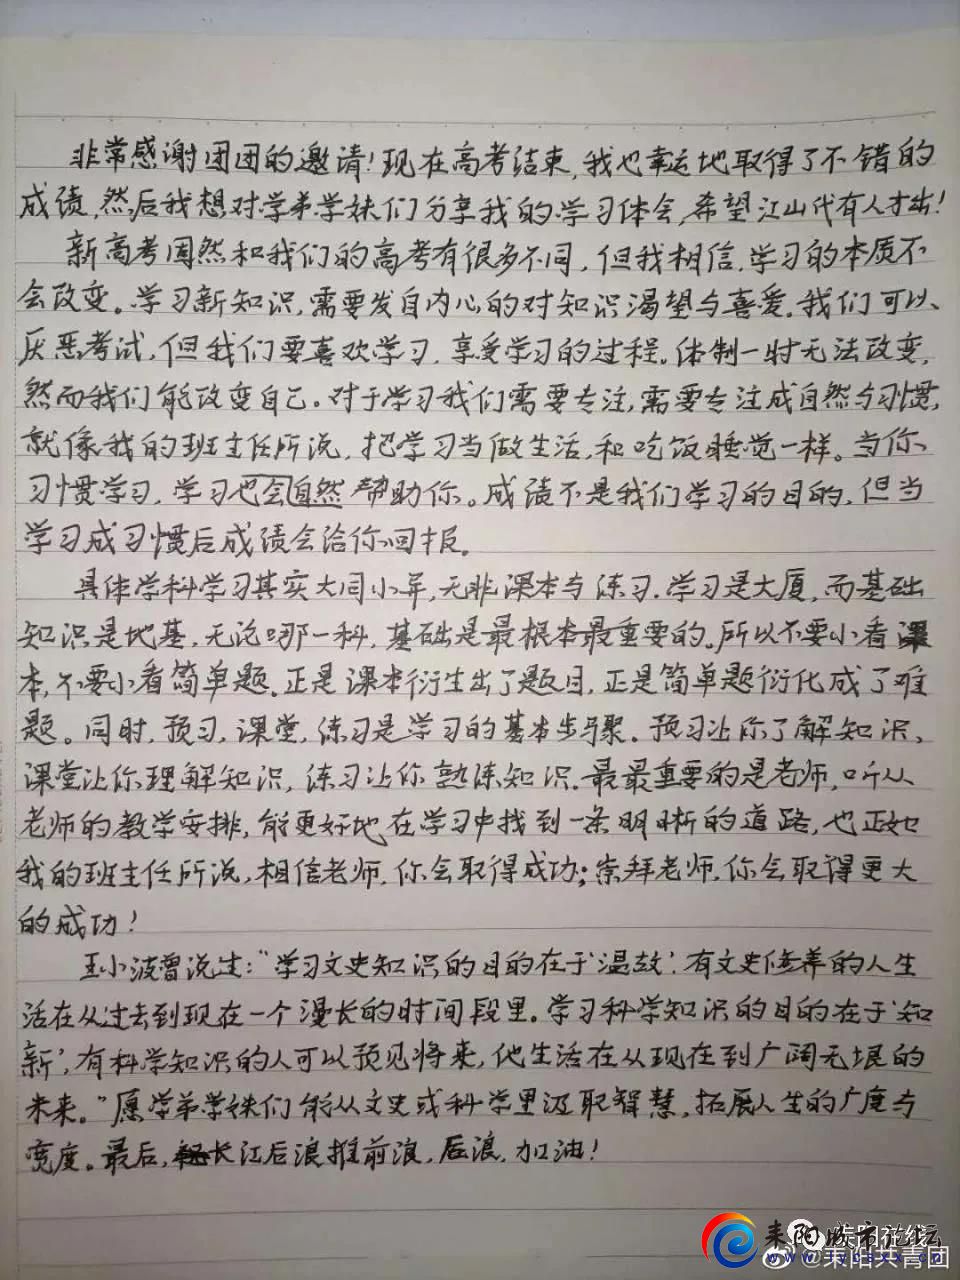 非常感谢团团的邀请!现在高考结束,我也幸运地取得了不错的
成绩,然后我想对学弟学妹们分享我的学习体会,希望江山代有人才出!
新高考固然和我们的高考有很多不同,但我相信,学习的本质不
会改变。学习新知识,需要发自内心的对知识渴望与喜爱。我们可以
厌恶考试,但我们要喜欢学习,享受学习的过程。体制一时无法改变,
然而我们能改变自己。对于学习我们需要专注,需要专注成自然与习惯,
就像我的班主任所说,把学习当做生活,和吃饭睡觉一样。当你
习惯学习,学习也会自然帮助你。成绩不是我们学习的目的,但当
学习成习惯后成绩会给你回报。
具体学科学习其实大同小异,无非课本与练习.学习是大厦,而基础
知识是地基,无论哪一科,基础是最根本最重要的。所以不要小看课
本,不要小看简单题。正是课本衍生出了题目,正是简单题衍化成了难
题。同时,预习,课堂,练习是学习的基本步骤。预习让你了解知识、
课堂让你理解知识,练习让你熟练知识.最最重要的是老师,听从
老师的教学安排,能更好地在学习中找到一条明晰的道路,也正如
我的班主任所说,相信老师,你会取得成功;崇拜老师,你会取得更大
的成功!
王小波曾说过:"学习文史知识的目的在于'温故',有文史修养的人生
活在从过去到现在一个漫长的时间段里。学习科学知识的目的在于'知
新',有科学知识的人可以预见将来,他生活在从现在到广阔无垠的
未来。"愿学弟学妹们能从文史或科学里汲取智慧,拓展人生的广度与
宽度。最后,长江后浪推前浪,后浪,加油!
耒阳城市论坛
@耒阳共青团